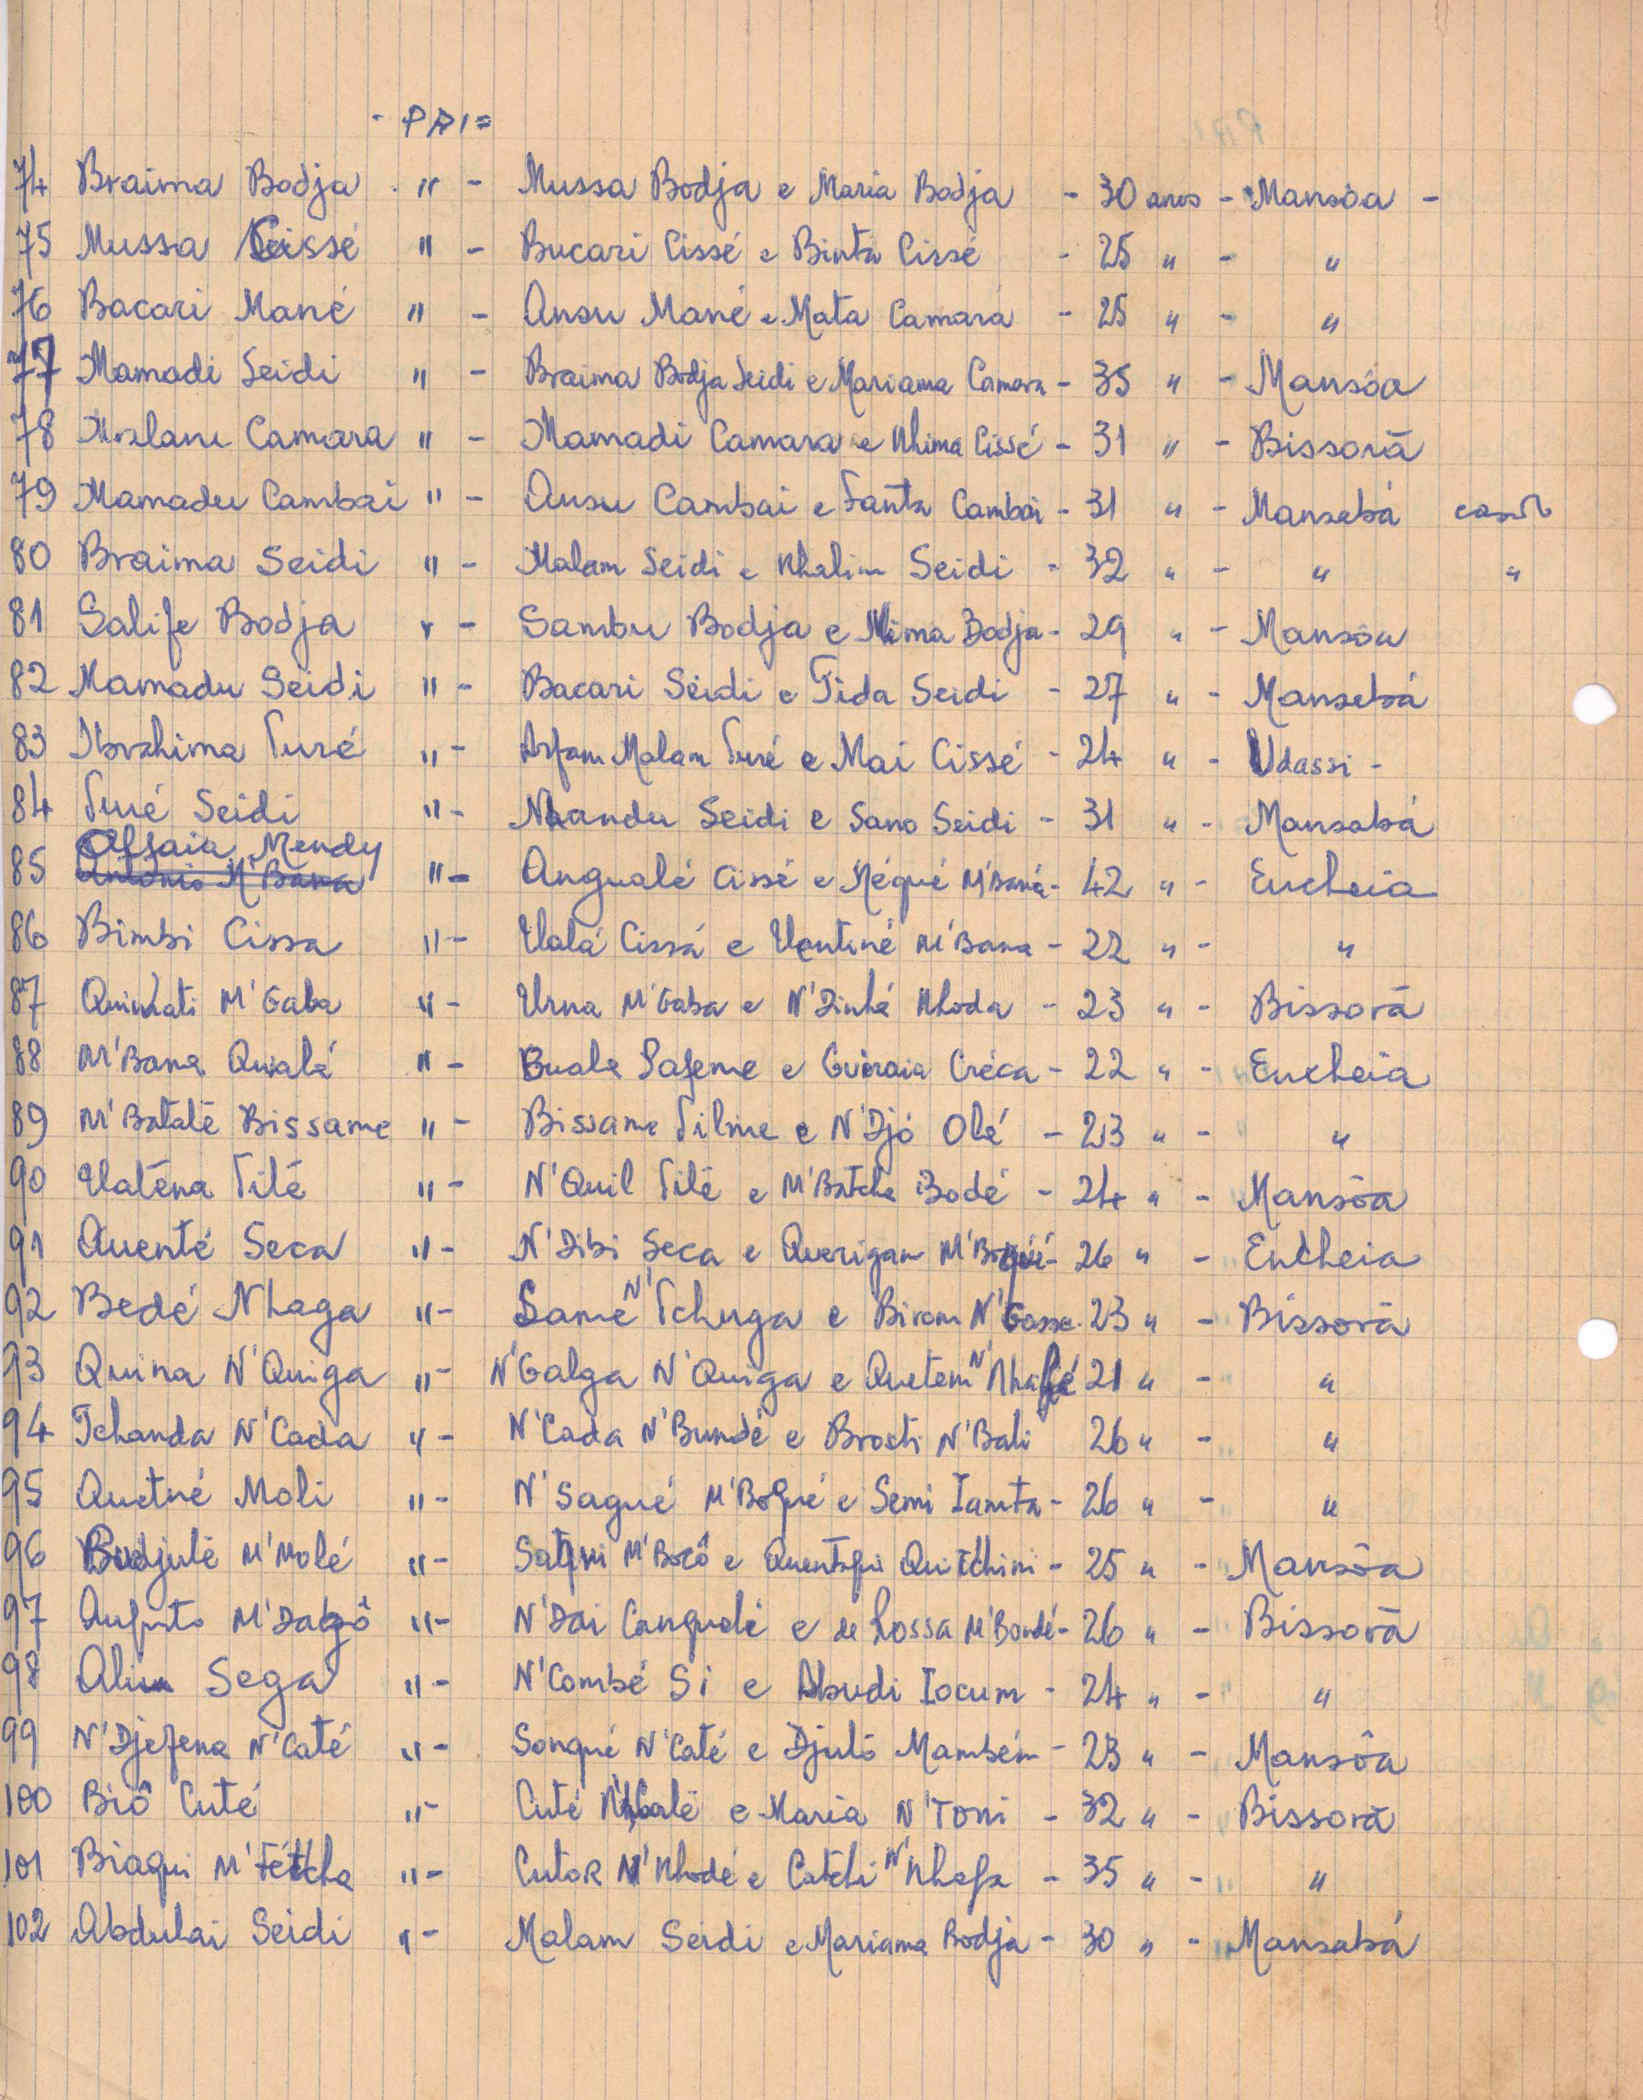 - PAI =
74 Braima Bodja " - Mussa Bodja e Maria Bodja - 30 anos - Mansôa -
75 Mussa Seissé " - Bucari Cissé e Binta Cissé - 25 " - "
76 Bacari Mané " - Ansu Mané e Mata Camará - 25 " - "
77 Mamadi Seidi " - Braima Bodja Seidi e Mariama Camara - 35 " - Mansôa
78 Camara " - Mamadi Camara e Nhima Cissé - 31 " - Bissorã
79 Mamadu Cambai " - Ansu Cambai e Fanta Cambai - 31 " - Mansabá
80 Braima Seidi " - Malam Seidi e Nhalim Seidi - 32 " - " "
81 Salife Bodja " - Sambu Bodja e Nima Bodja - 29 " - Mansôa
82 Mamadu Seidi " - Bacari Seidi e Tida Seidi - 27 " - Mansabá
83 Ibrahima Turé " - Arfam Malam Turé e Mai Cissé - 24 " - Udassi -
84 Turé Seidi " - Nhandu Seidi e Sano Seidi - 31 " - Mansabá
Assaia Mendy
85 Antonio M'Bana " - Angualé Cissé e Néqué M'Bané - 42 " - Encheia
86 Bimbi Cissa " - Ualá Cissá e Uentiné M'Bana - 22 " - "
87 M'Gaba " - Urna M'Gaba e N'Dinhá Nhoda - 23 " - Bissorã
88 M'Bana Quialé " - Buala Safeme e Créca - 22 " - Encheia
89 M'Batalé Bissame " - Bissame Tilme e N'Djó Olé - 23 " - "
90 Uaténa Tité " - N'Quil Tité e M'Batcha Bodé - 24 " - Mansôa
91 Quenté Seca " - N'Dibi Seca e Querigam - 26 " - Encheia
92 Bedé Nhaga " - Samé N'Tchuga e Birom N'Gosse - 23 " - Bissorã
93 Quina N'Quiga " - N'Galga N'Quiga e Quetem N' 21 " - "
94 Tchanda N'Cada " - N'Cada N'Bundé e Brosti N'Bali 26 " - "
95 Quetné Moli " - N'Sagué M'Boqué e Semi Iamta - 26 " - "
96 Budjulé M'Molé " - Satqui M'Bocô e Quitchini - 25 " - Mansôa
97 Aufuto " - N'Dai Cangualé e de Lossa M'Bondé - 26 " - Bissorã
98 Sega " - N'Combé Si e Abudi Iocum - 24 " - "
99 N'Djefena N'Caté " - Songué N'Caté e Djuló Mambém - 23 " - Mansôa
100 Biô Cuté " - Cuté e Maria N'Toni - 32 " - Bissorã
101 Biaqui M'Fétcha " - Cutar N'Nhodé e Catchi N'Nhafa - 35 " - "
102 Abdulai Seidi " - Malam Seidi e Mariama Bodja - 30 " - Mansabá